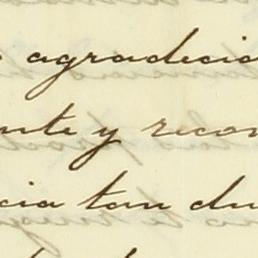 agradecid
nte y recon
cia tan du